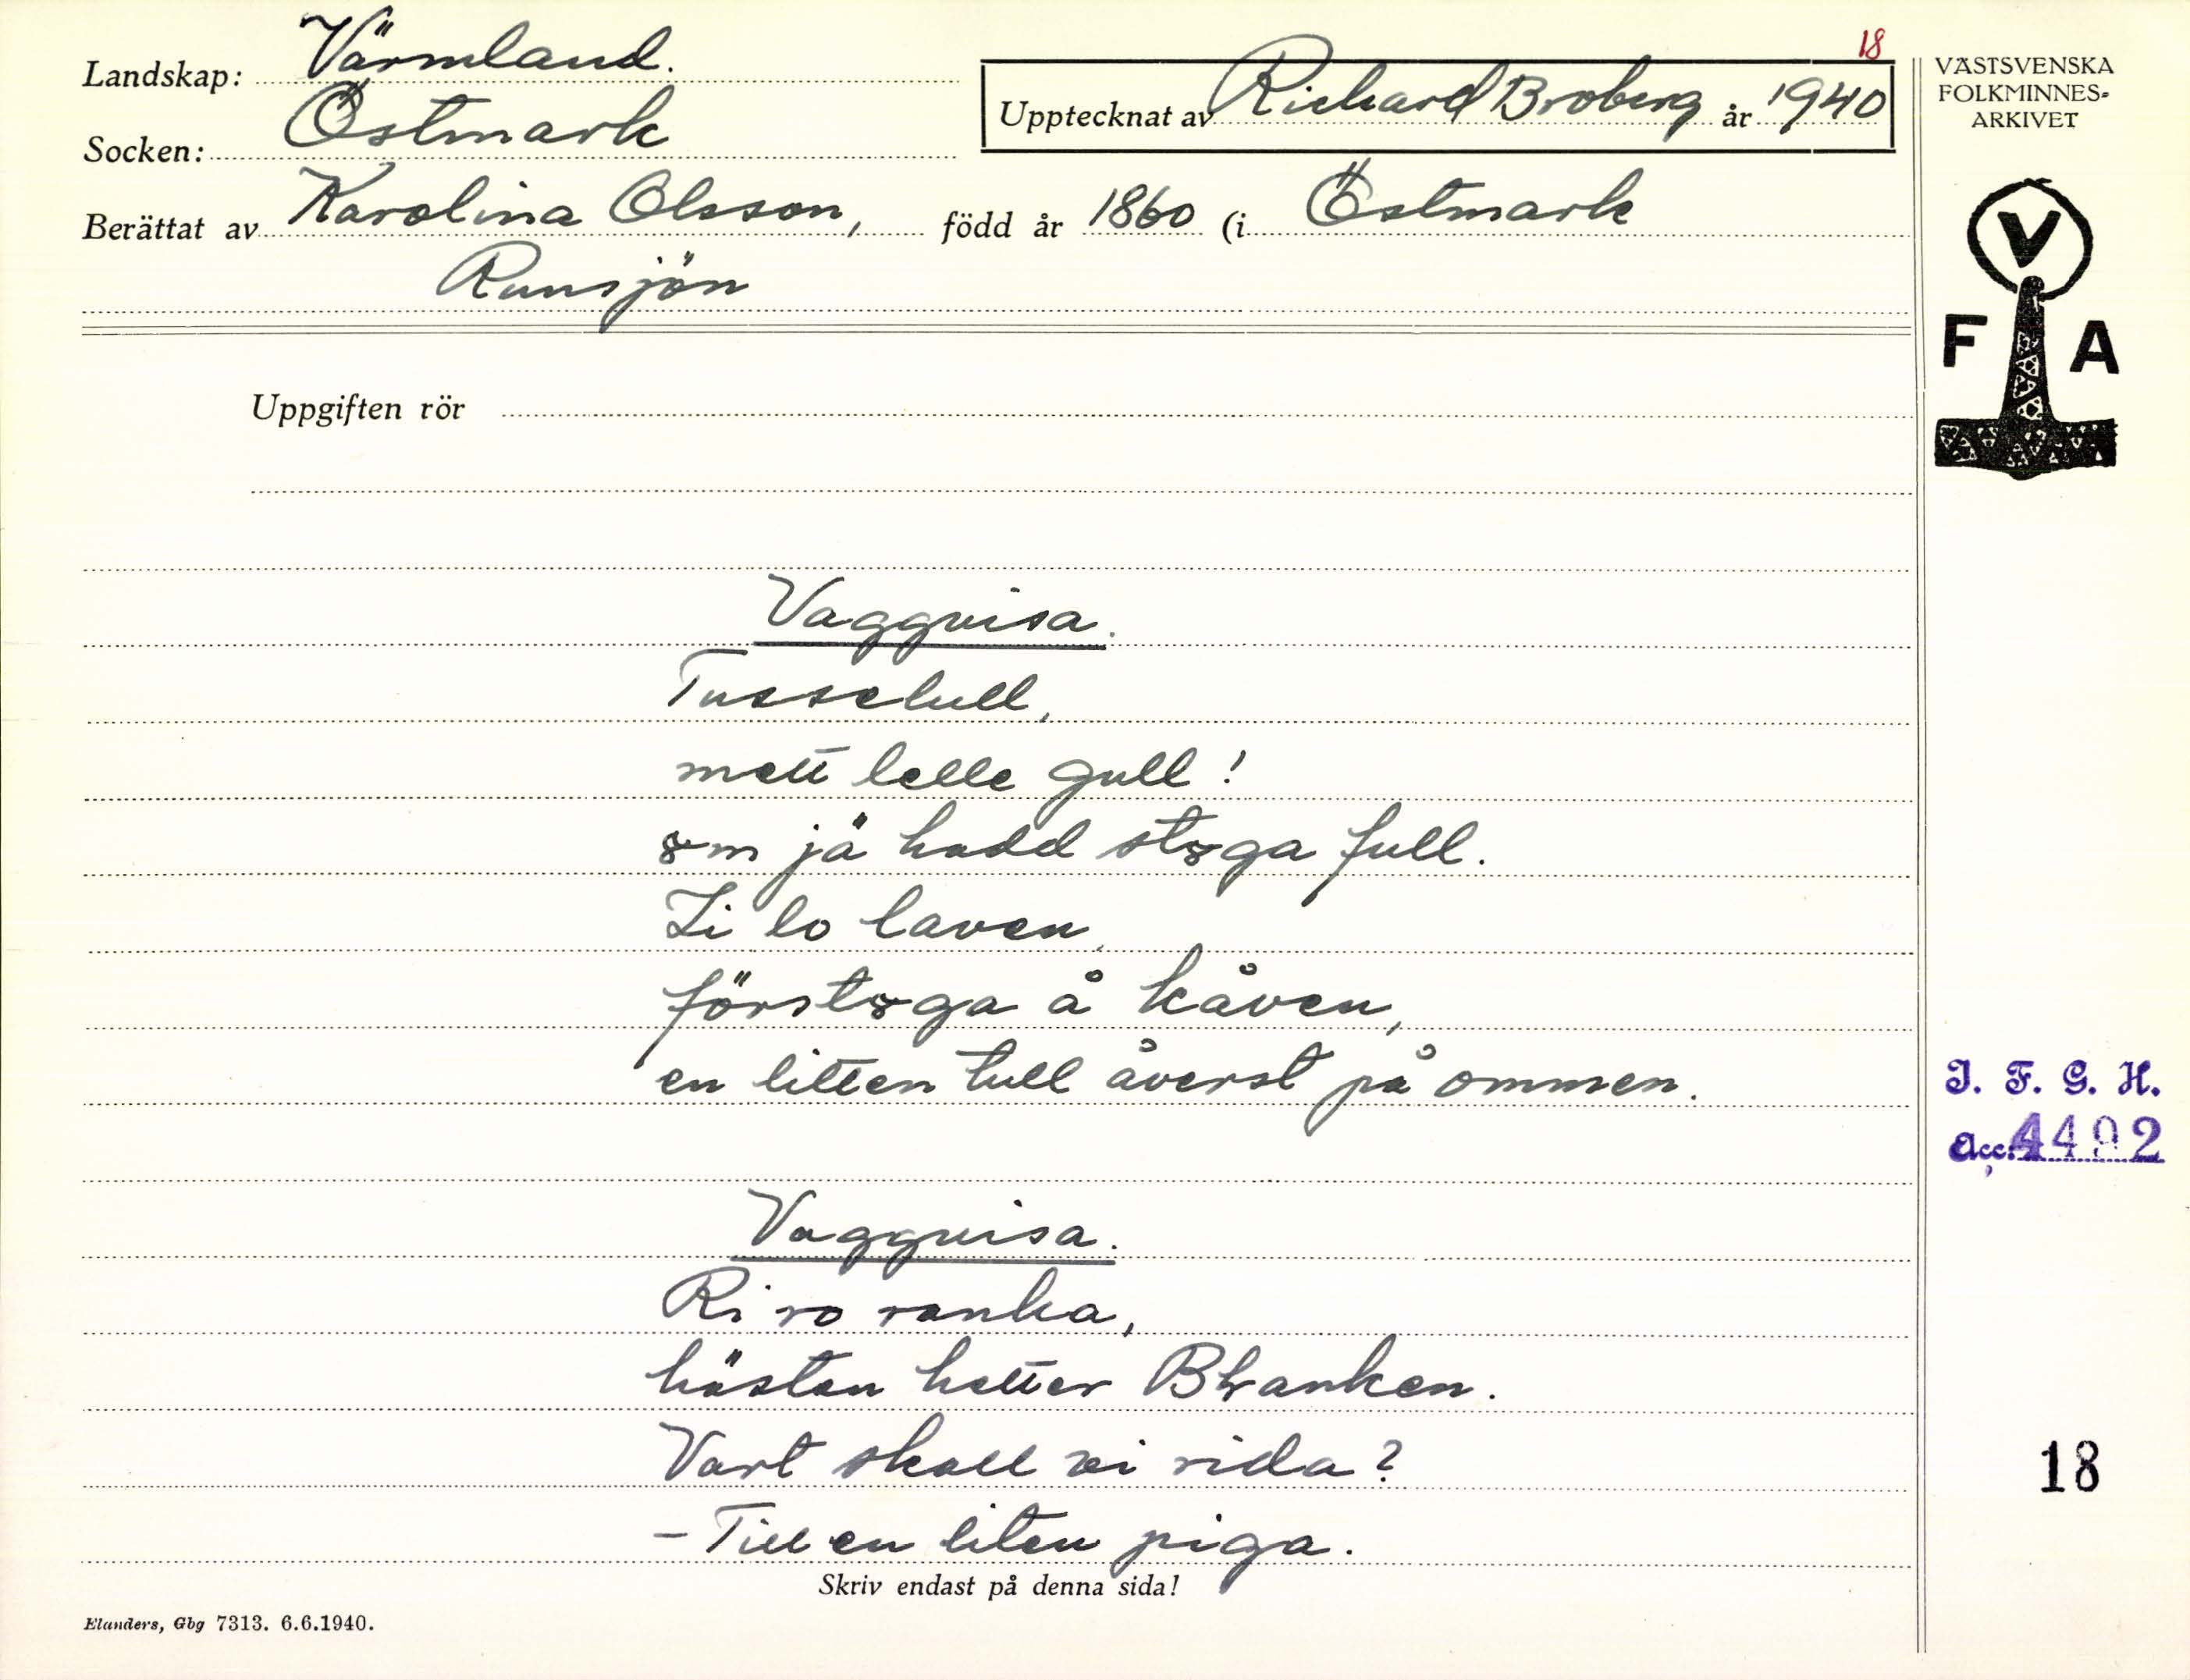 18
Landskap: Värmland.
Socken: Östmark
Upptecknat av Richard Broberg år 1940
Berättat av Karolina Olsson, född år 1860 (i Östmark
Runsjön
VÄSTSVENSKA
FOLKMINNES-
ARKIVET
V
F A
Uppgiften rör
Vaggvisa.
Tusselull,
mett lelle gull!
ɤm jä hadd stɤga full.
Li lo laven,
förstɤga å kåven,
en litten tull åverst på ommen.
I. F. G. H.
Acc. 4492
Vaggvisa.
Ri ro ranka,
hästen hetter Blranken.
Vart skall vi rida?
18
- Till en liten piga.
Skriv endast på denna sida!
Elanders, Gbg 7313. 6.6.1940.